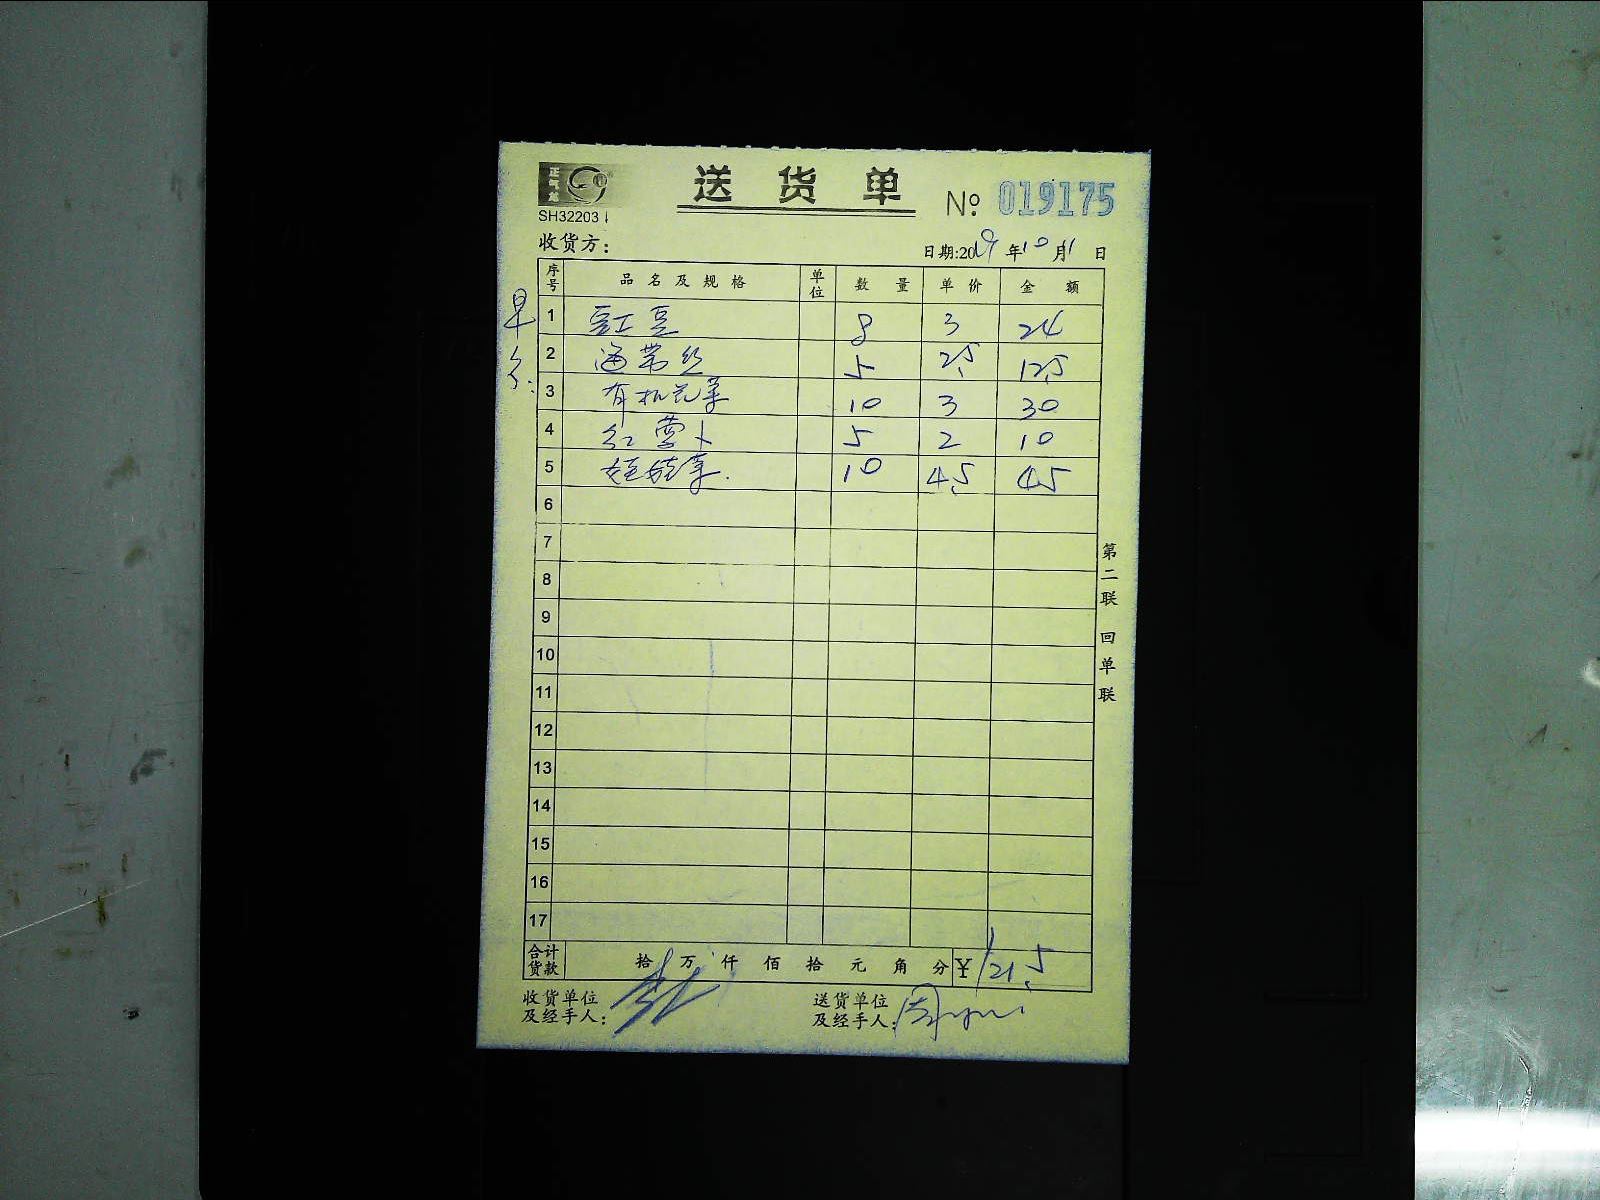 正气龙
SH32203
送货单
No: 019175
收货方：
日期:2019年10月1日
序号 品名及规格 单位 数量 单价 金额
早
1 豇豆 8 3 24
2 海带丝 5 2.5 12.5
3 有机花菜 10 3 30
4 红萝卜 5 2 10
5 娃娃菜 10 4.5 45
6
7
8
9
10
11
12
13
14
15
16
17
第二联 回单联
合计货款 拾 万 仟 佰 拾 元 角 分 ¥ 121.5
收货单位及经手人：
送货单位及经手人：周